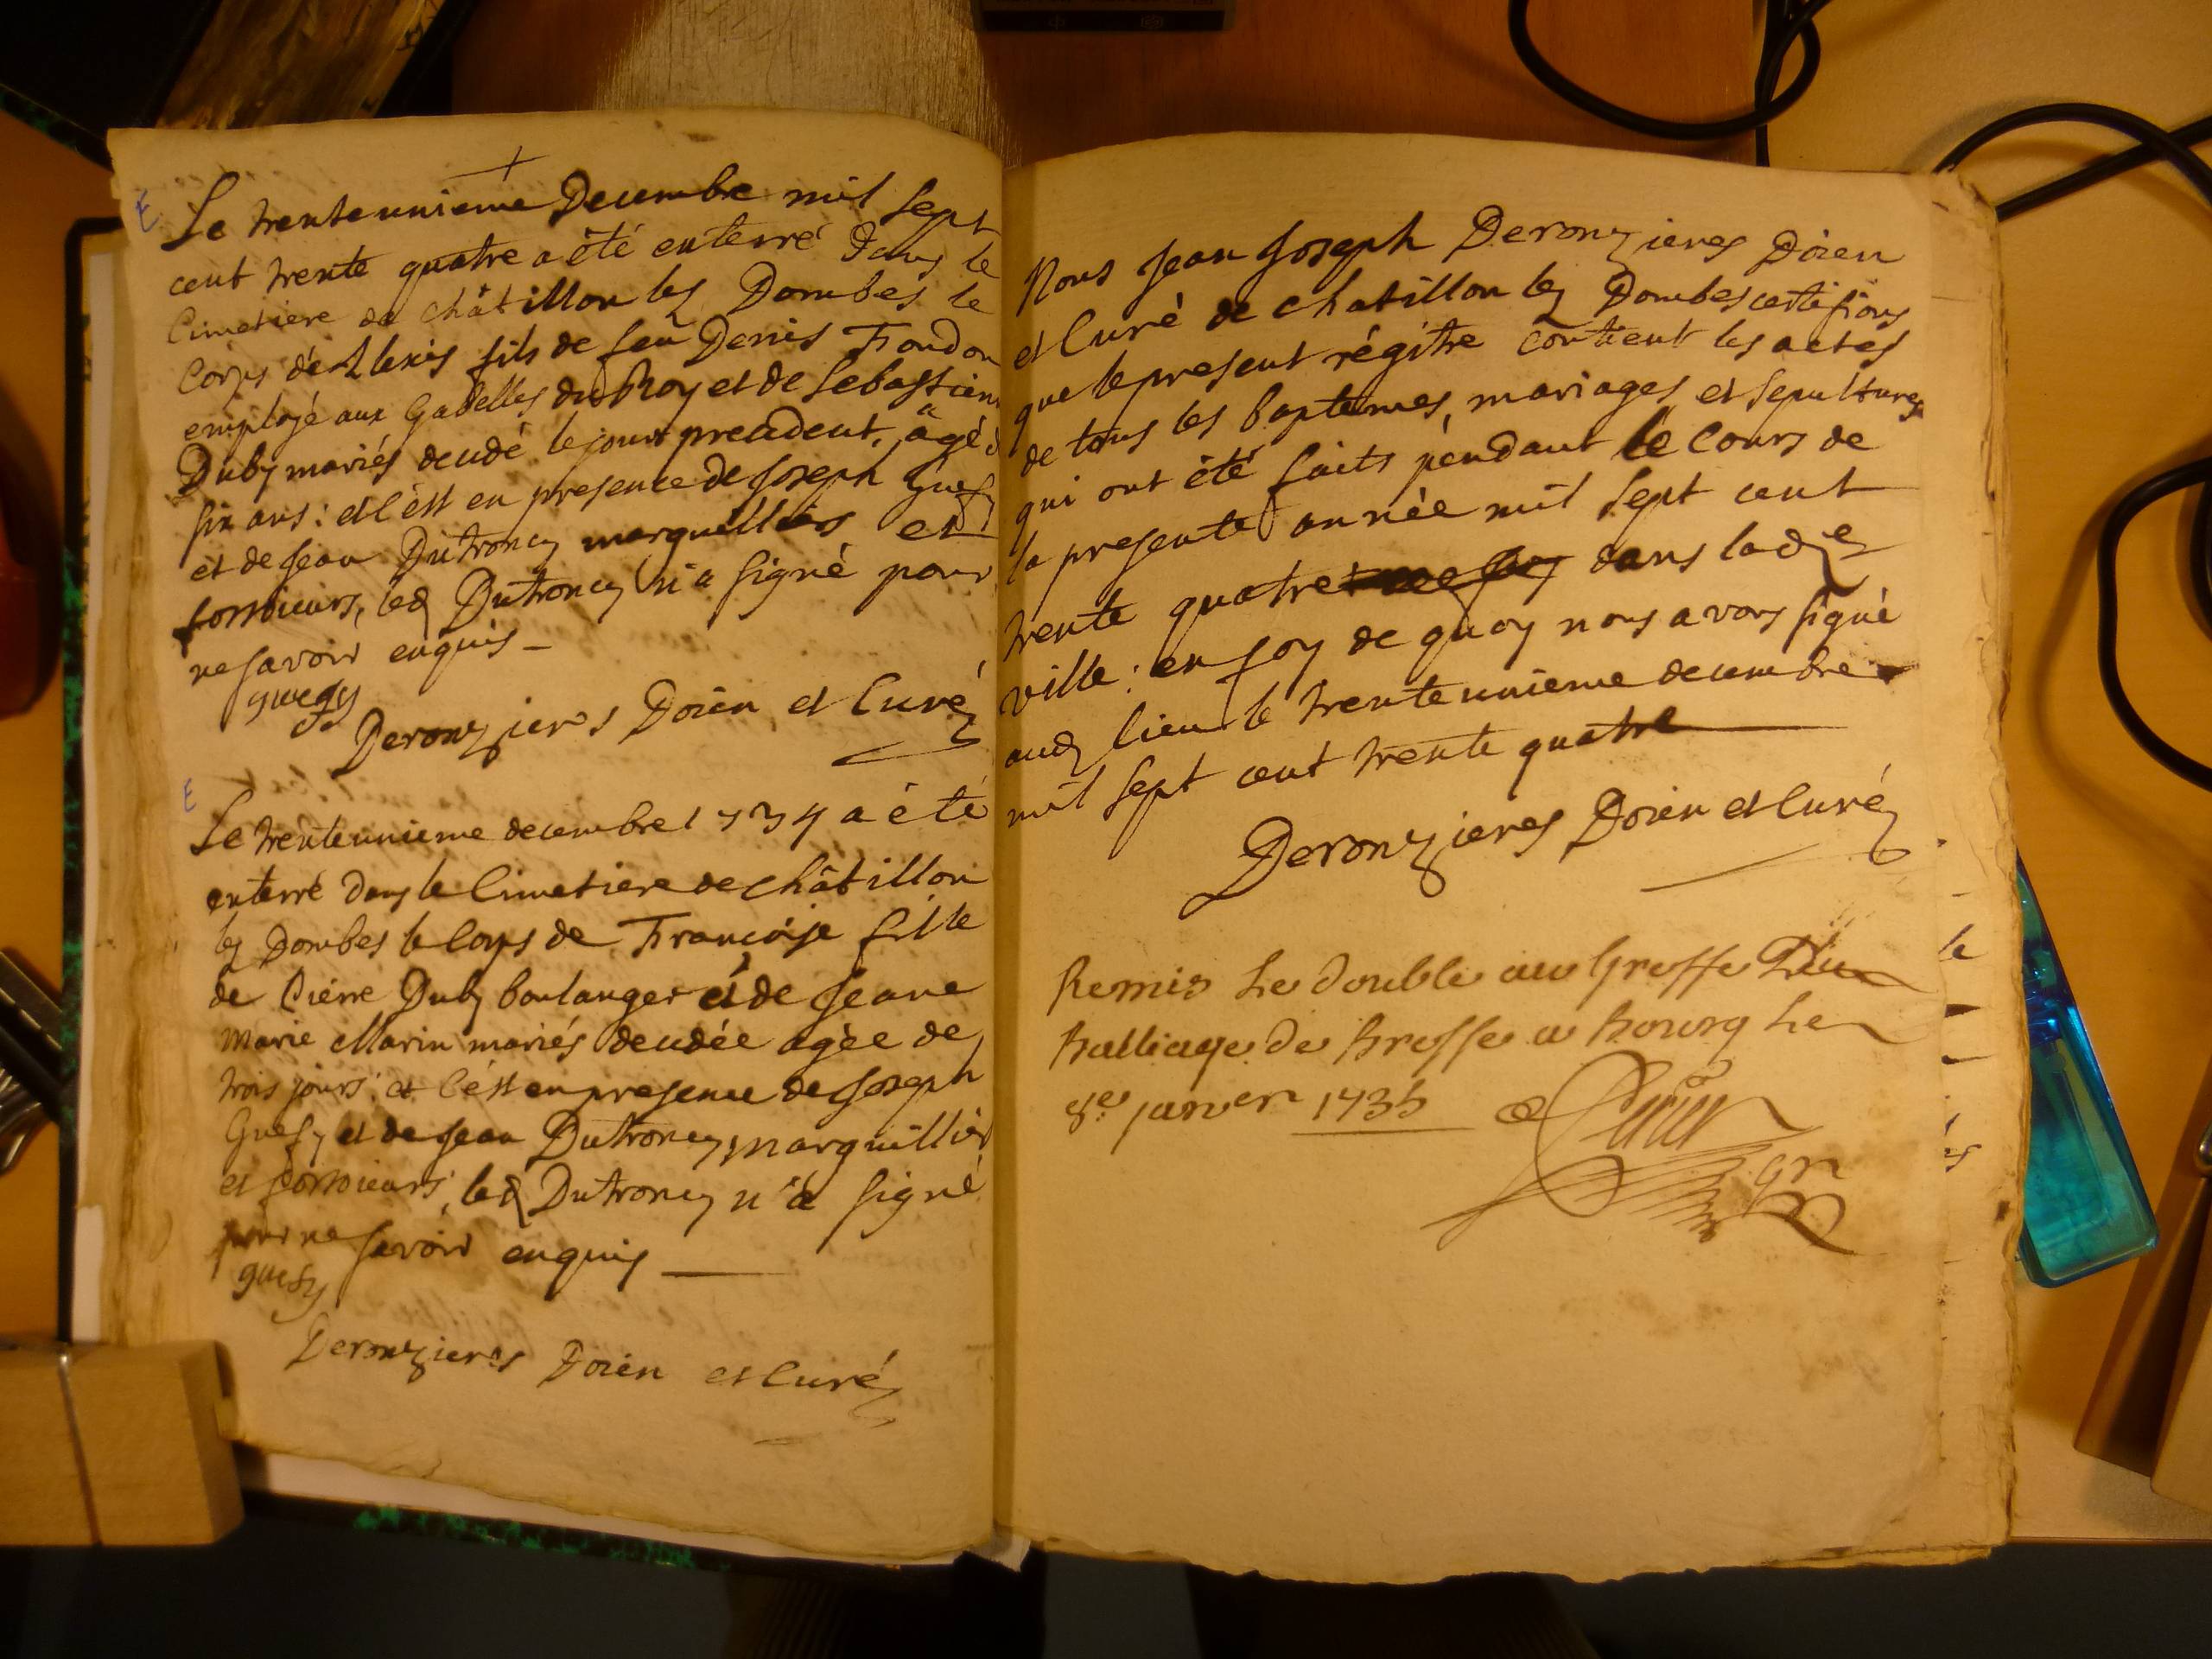 E
Le trente unieme Decembre mil sept
cent trente quatre a été enterré dans le
Cimetiere de châtillon les Dombes le
Corps de Alexis fils de feu Denis Frondon
emplojé aux Gabelles du Roy et de Sebastiene
Duby mariés decedé le jour precedent, âgé d
six ans : et c'est en presence de Joseph Guesy
et de Jean Dutroncy marguilliers et
fossoieurs, led Dutroncy n'a signé pour
ne savoir enquis -
guesy
Deronzieres Doien et Curé
E
Le trente unieme decembre 1734 a été
enterré dans le Cimetiere de châtillon
les Dombes le Corps de Françoise fille
de Piérre Duby boulanger et de Jeane
Marie Marin mariés decedée agée de
trois jours : et c'ést en presence de Joseph
Guesy et de Jean Dutroncy marguilliers
et fossoieurs, led Dutroncy n'a signé
pour ne savoir enquis
guesy
Deronzieres Doien et Curé
Nous Jean Joseph Deronzieres Doien
et Curé de chatillon les Dombes certifions
que le present régitre contient les actes
de tous les baptêmes, mariages, et sepultures
qui ont été faits pendant le Cours de
la presente année mil sept cent
trente quatre dans lad.e
ville : en foy de quoy nous avons signé
aud lieu le trente unieme decembre
mil sept cent trente quatre
Deronzieres Doien et Curé
Remis Le double au Greffe Du
balliage de bresse a bourg Le
8e janvier 1735
gr
le